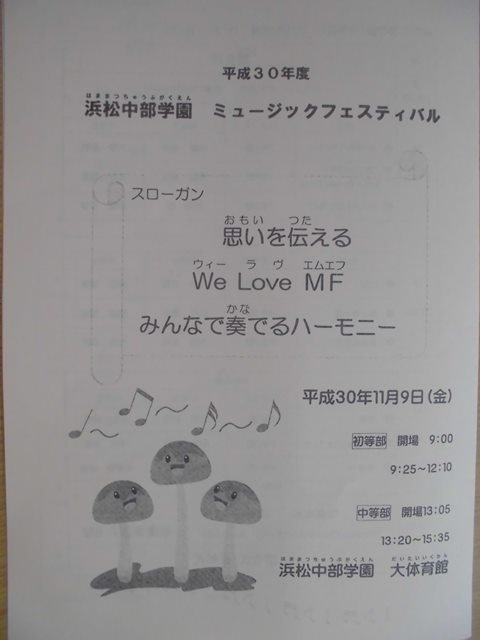 平成30年度
はままつちゅうぶがくえん
浜松中部学園 ミュージックフェスティバル
スローガン
おもい つた
思いを伝える
ウィー ラヴ エムエフ
We Love MF
かな
みんなで奏でるハーモニー
平成30年11月9日(金)
初等部 開場 9:00
9:25～12:10
中等部 開場13:05
13:20～15:35
はままつちゅうぶがくえん だいたいいくかん
浜松中部学園 大体育館